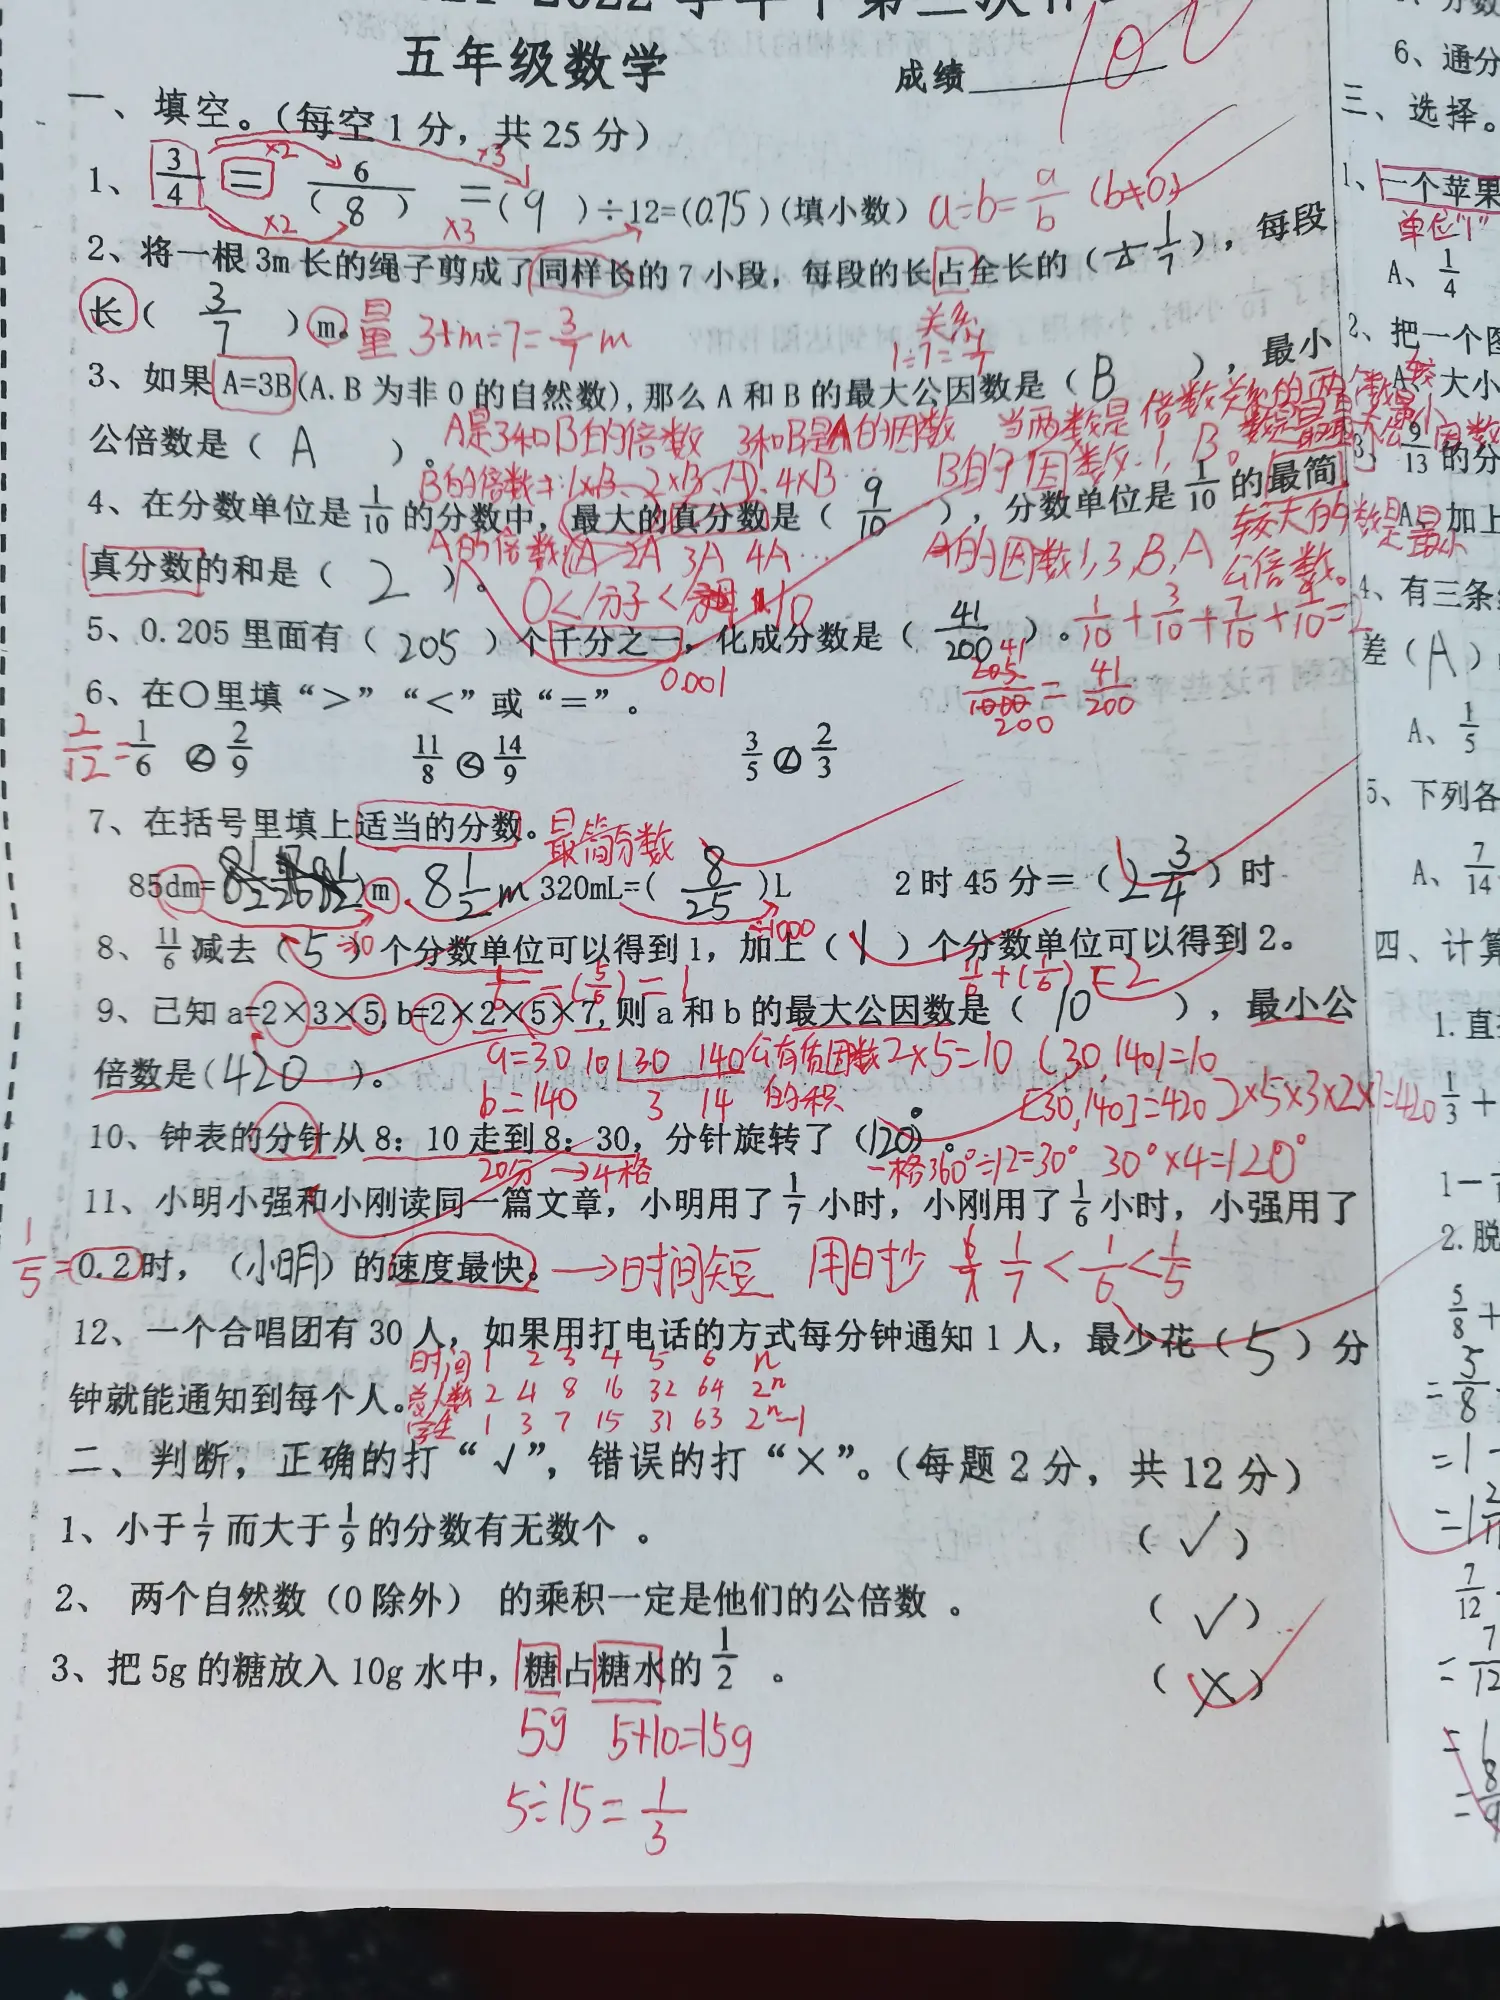 五年级数学
成绩 100
一、填空。(每空1分，共25分)
1、3/4 = 6/(8) =(9)÷12=(0.75)(填小数) a÷b=a/b (b≠0)
×2 ×3
×2 ×3
2、将一根3m长的绳子剪成了同样长的7小段，每段的长占全长的(1/7)，每段
长(3/7)m。量 3÷7=3/7m 关系
1÷7=1/7
3、如果A=3B(A.B为非0的自然数),那么A和B的最大公因数是(B)，最小
公倍数是(A)。A是3和B的倍数 3和B是A的因数 当两数是倍数关系的两个数较小
B的倍数:1×B、2×B、A、4×B B的因数:1,B。数是最大公因数
4、在分数单位是1/10的分数中，最大的真分数是(9/10)，分数单位是1/10的最简
A的倍数:A 2A 3A 4A… A的因数1,3,B,A 较大的数是最小
真分数的和是(2)。0<分子<分母10 公倍数。
5、0.205里面有(205)个千分之一，化成分数是(41/200)。1/10+3/10+7/10+9/10=2
0.001 205/1000 41/200=41/200
6、在○里填“>”“<”或“=”。
2/12=1/6<2/9 11/8<14/9 3/5<2/3
7、在括号里填上适当的分数。最简分数
85dm= )m 8 1/2 m 320mL=(8/25)L 2时45分=(2 3/4)时
÷10 ÷1000
8、11/6减去(5)个分数单位可以得到1，加上(1)个分数单位可以得到2。
11/6-(5/6)=1 11/6+(1/6)=2
9、已知a=2×3×5,b=2×2×5×7,则a和b的最大公因数是(10)，最小公
倍数是(420)。a=30 10 30 140 公有质因数2×5=10 (30,140)=10
b=140 3 14 的积 [30,140]=420 2×5×3×2×7=420
10、钟表的分针从8：10走到8：30，分针旋转了(120)°。
20分→4格 一格360°÷12=30° 30°×4=120°
11、小明小强和小刚读同一篇文章，小明用了1/7小时，小刚用了1/6小时，小强用了
1/5=0.2时，(小明)的速度最快。→时间短 用时少 1/7<1/6<1/5
12、一个合唱团有30人，如果用打电话的方式每分钟通知1人，最少花(5)分
时间 1 2 3 4 5 6 n
钟就能通知到每个人。总人数 2 4 8 16 32 64 2ⁿ
学生 1 3 7 15 31 63 2ⁿ-1
二、判断，正确的打“√”，错误的打“×”。(每题2分，共12分)
1、小于1/7而大于1/9的分数有无数个。(√)
2、 两个自然数（0除外） 的乘积一定是他们的公倍数 。(√)
3、把5g的糖放入10g水中，糖占糖水的1/2 。(×)
5g 5+10=15g
5÷15=1/3
6、通分
三、选择。
1、一个苹果
单位"1"
A、1/4
2、把一个
A、大小
3、9/13的分
A、加上
4、有三条
差(A)
A、1/5
5、下列各
A、7/14
四、计算
1.直
1/3+
2.脱
5/8+
=5/8
=1
7/12
=7/12